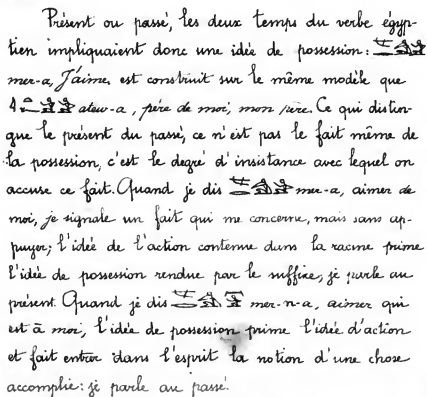 Présent ou passé, les deux temps du verbe égyp-
tien impliquaient donc une idée de possession:
mer-a, J'aime, est construit sur le même modèle que
atew-a, père de moi, mon père. Ce qui distin-
gue le présent du passé, ce n'est pas le fait même de
la possession, c'est le degré d'insistance avec lequel on
accuse ce fait. Quand je dis mer-a, aimer de
moi, je signale un fait qui me concerne, mais sans ap-
puyer; l'idée de l'action contenue dans la racine prime
l'idée de possession rendue par le suffixe; je parle au
présent. Quand je dis mer-n-a, aimer qui
est à moi, l'idée de possession prime l'idée d'action
et fait entrer dans l'esprit la notion d'une chose
accomplie: je parle au passé.